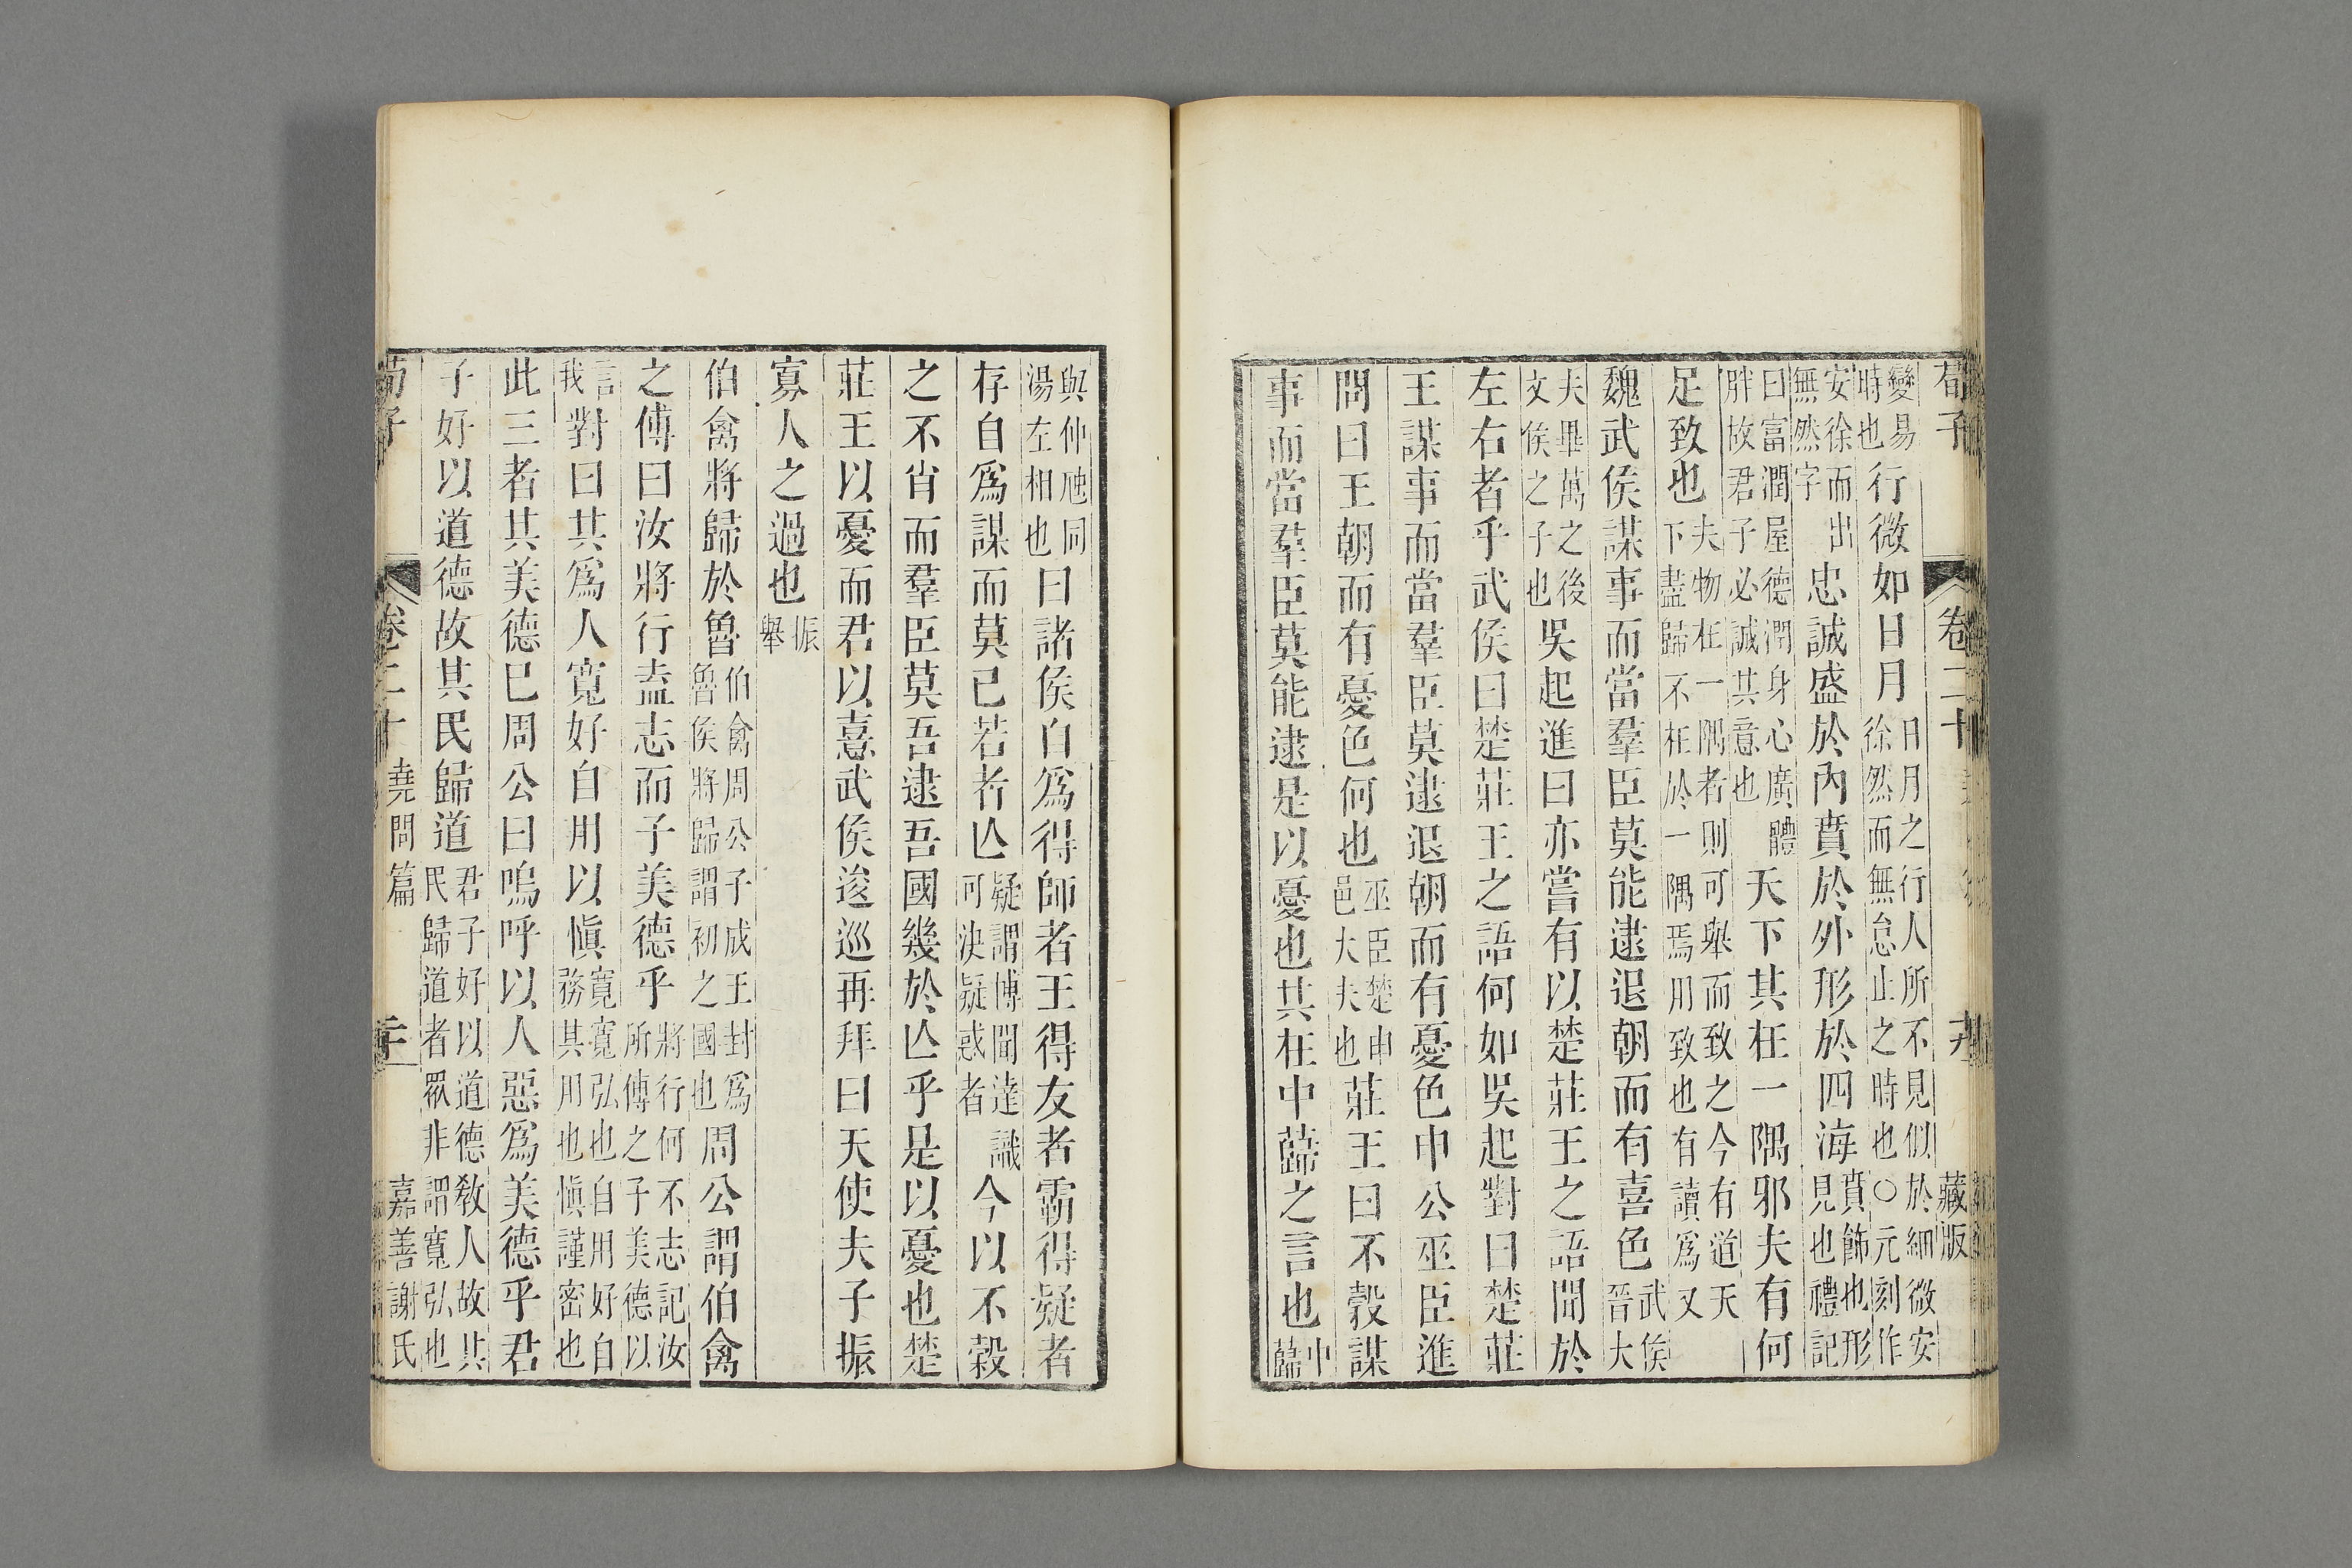 荀子 卷二十 藏版
變易時也行微如日月日月之行人所不見似於細微安徐然而無怠止之時也○元刻作
安徐而出無然字忠誠盛於內賁於外形於四海賁飾也形見也禮記
曰富潤屋德潤身心廣體胖故君子必誠其意也天下其在一隅邪夫有何
足致也夫物在一隅者則可舉而致之今有道天下盡歸不在於一隅焉用致也有讀爲又
魏武侯謀事而當羣臣莫能逮退朝而有喜色武侯晉大
夫畢萬之後文侯之子也吳起進曰亦嘗有以楚莊王之語聞於
左右者乎武侯曰楚莊王之語何如吳起對曰楚莊
王謀事而當羣臣莫逮退朝而有憂色申公巫臣進
問曰王朝而有憂色何也巫臣楚申邑大夫也莊王曰不穀謀
事而當羣臣莫能逮是以憂也其在中蘬之言也中蘬
與仲虺同湯左相也曰諸侯自爲得師者王得友者霸得疑者
存自爲謀而莫己若者亾疑謂博聞達識可決疑惑者今以不穀
之不肖而羣臣莫吾逮吾國幾於亾乎是以憂也楚
莊王以憂而君以憙武侯逡巡再拜曰天使夫子振
寡人之過也振舉
伯禽將歸於魯伯禽周公子成王封爲魯侯將歸謂初之國也周公謂伯禽
之傅曰汝將行盍志而子美德乎將行何不志記汝所傅之子美德以
言我對曰其爲人寬好自用以愼寬寬弘也自用好自務其用也愼謹密也
此三者其美德已周公曰嗚呼以人惡爲美德乎君
子好以道德故其民歸道君子好以道德敎人故其民歸道者眾非謂寬弘也
荀子 卷二十 堯問篇 二十 嘉善謝氏